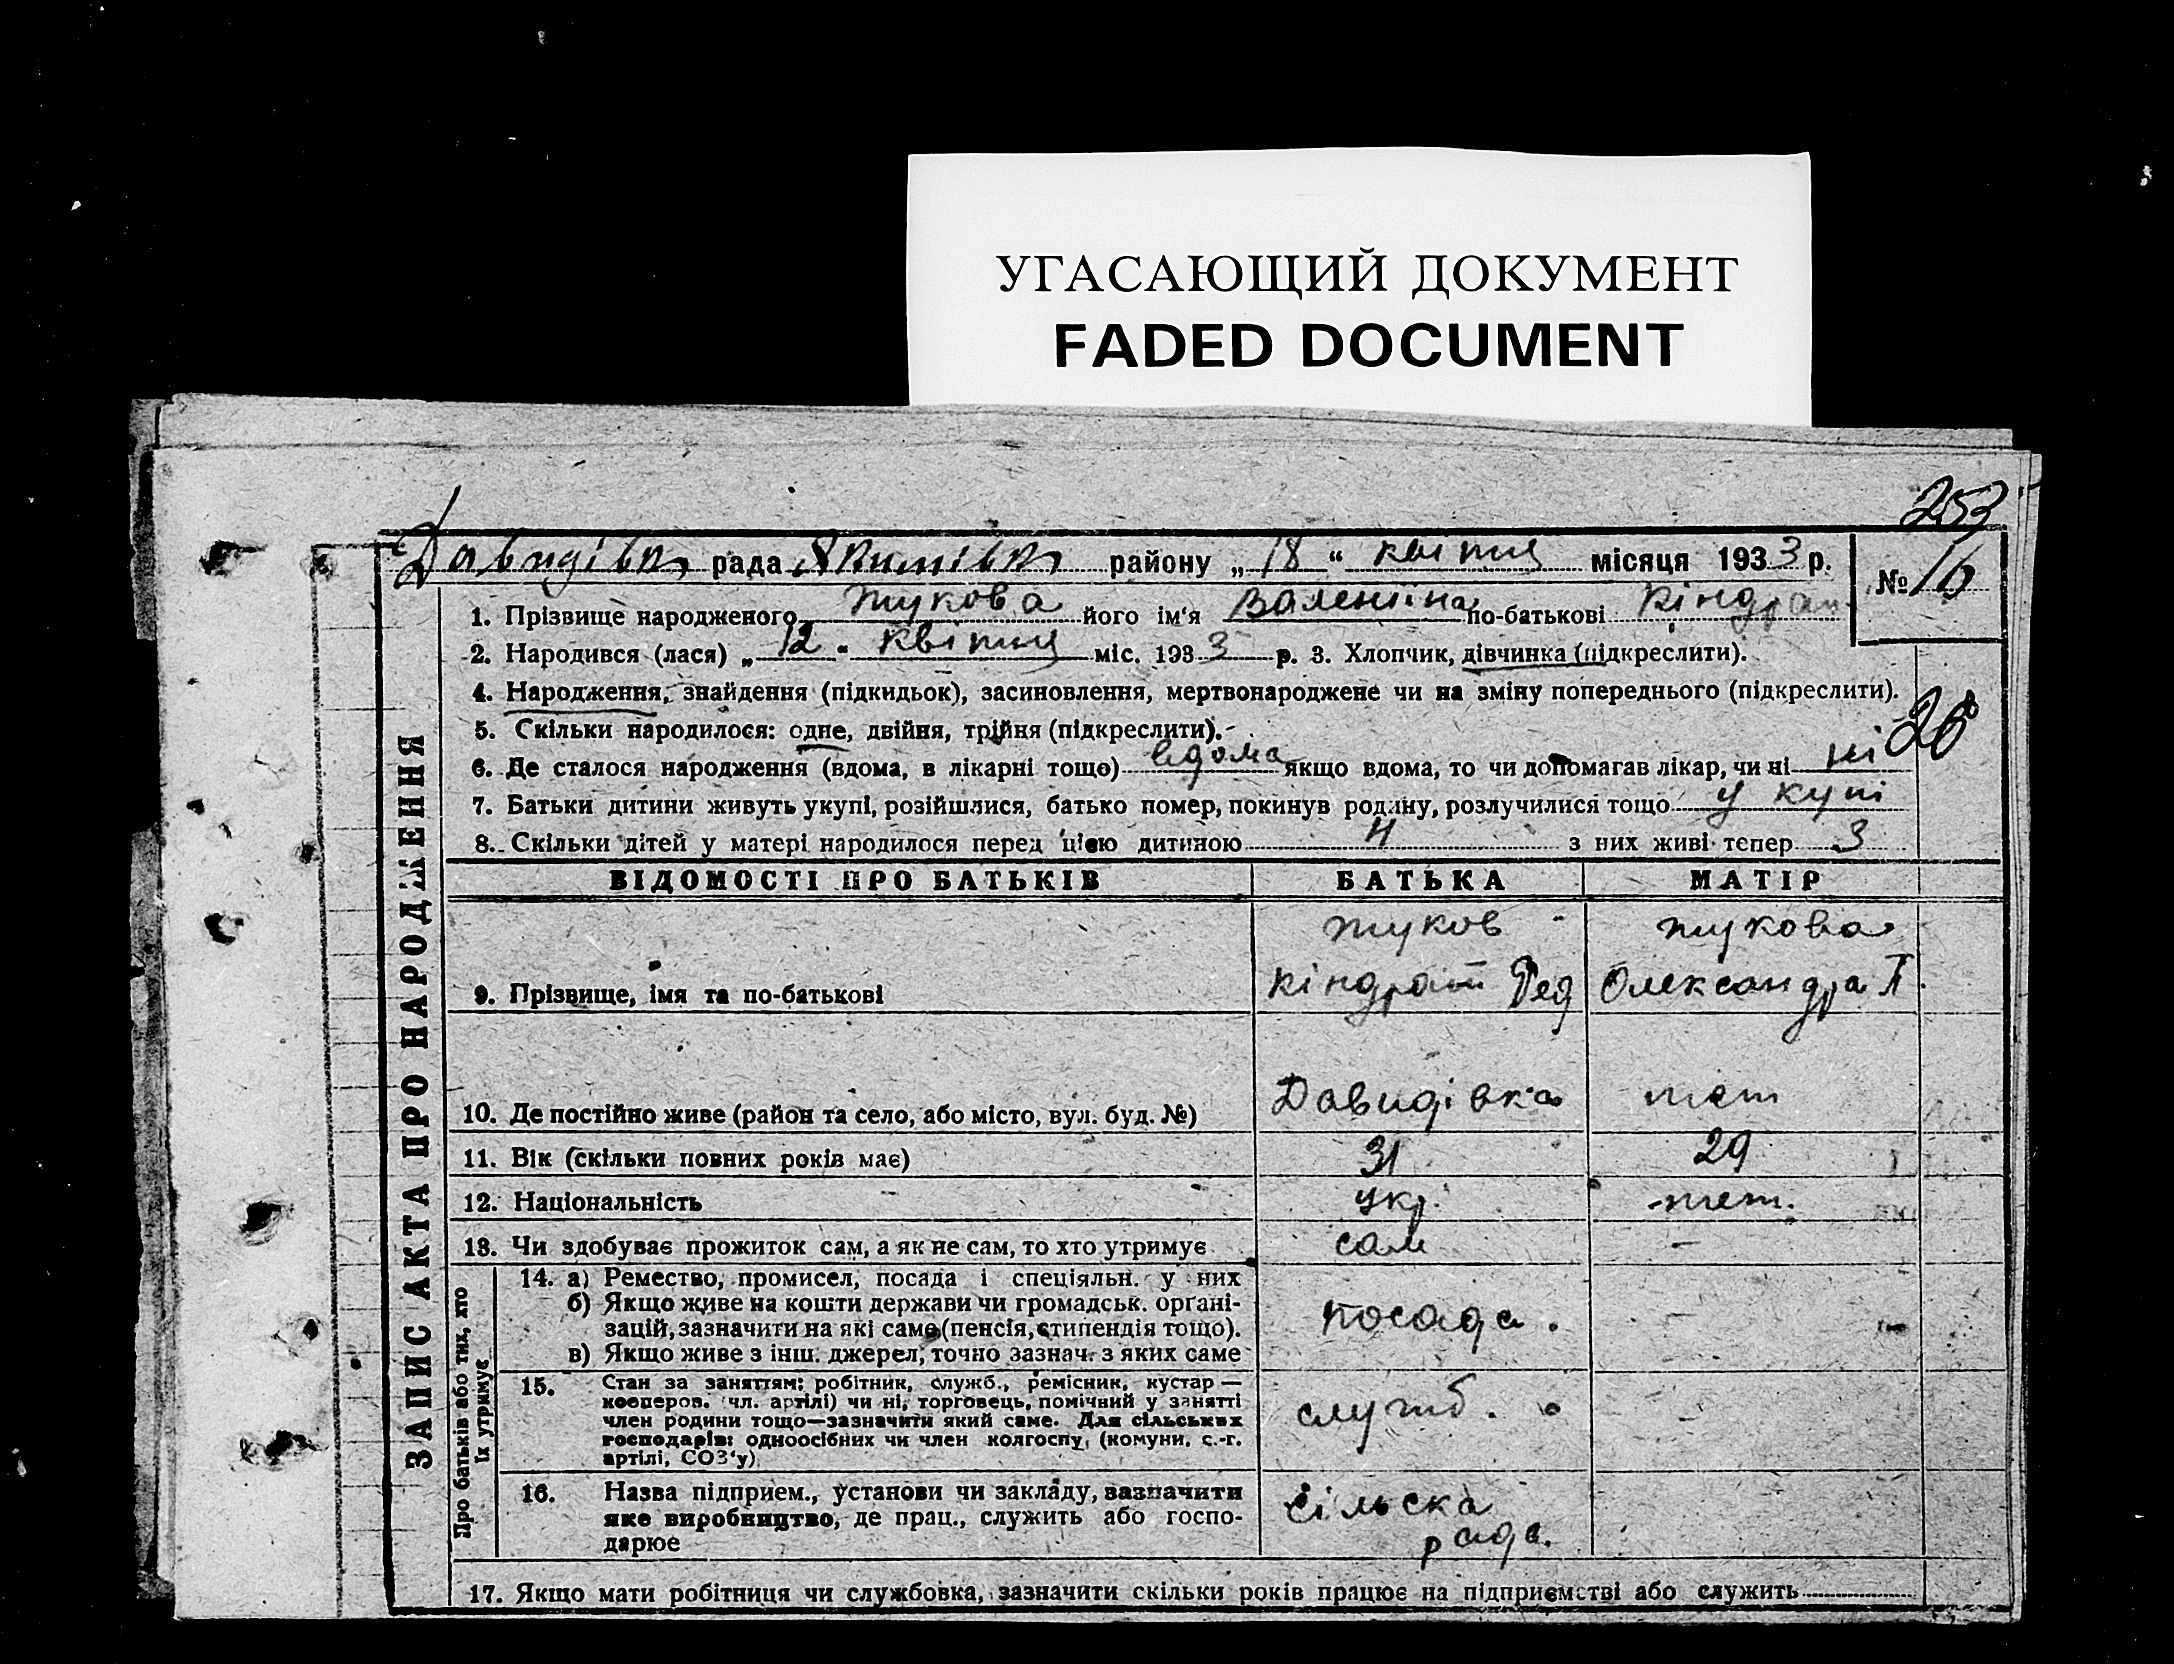 УГАСАЮЩИЙ ДОКУМЕНТ
FADED DOCUMENT
253
Давидівка рада Якимівка району „18“ квітня місяця 1933 р. № 16
1. Прізвище народженого Жукова його ім‘я Валентина по-батькові Кіндрат
2. Народився (лася) „12“ квітня міс. 1933 р. 3. Хлопчик, дівчинка (підкреслити).
4. Народження, знайдення (підкидьок), засиновлення, мертвонароджене чи на зміну попереднього (підкреслити).
5. Скільки народилося: одне, двійня, трійня (підкреслити).
6. Де сталося народження (вдома, в лікарні тощо) вдома якщо вдома, то чи допомагав лікар, чи ні ні
26
7. Батьки дитини живуть укупі, розійшлися, батько помер, покинув родину, розлучилися тощо у купі
8. Скільки дітей у матері народилося перед цією дитиною 4 з них живі тепер 3
ЗАПИС АКТА ПРО НАРОДЖЕННЯ
ВІДОМОСТІ ПРО БАТЬКІВ БАТЬКА МАТІР
Жуков Жукова
9. Прізвище, імя та по-батькові Кіндрат Фед Олександра П.
10. Де постійно живе (район та село, або місто, вул. буд. №) Давидівка теж
11. Вік (скільки повних років має) 31 29
12. Національність укр. теж.
13. Чи здобуває прожиток сам, а як не сам, то хто утримує сам -
Про батьків або тих, хто
їх утримує
14. а) Ремество, промисел, посада і спеціяльн. у них
б) Якщо живе на кошти держави чи громадськ. органі-
зацій, зазначити на які саме (пенсія, стипендія тощо). посада. -
в) Якщо живе з інш. джерел, точно зазнач. з яких саме
15. Стан за заняттям: робітник, служб., ремісник, кустар —
кооперов. (чл. артілі) чи ні, торговець, помічний у занятті
член родини тощо—зазначити який саме. Для сільських служб. -
господарів: одноосібних чи член колгоспу, (комуни, с.-г.
артілі, СОЗ‘у)
16. Назва підприєм., установи чи закладу, зазначити сільска
яке виробництво, де прац., служить або госпо- рада.
дарює
17. Якщо мати робітниця чи службовка, зазначити скільки років працює на підприємстві або служить